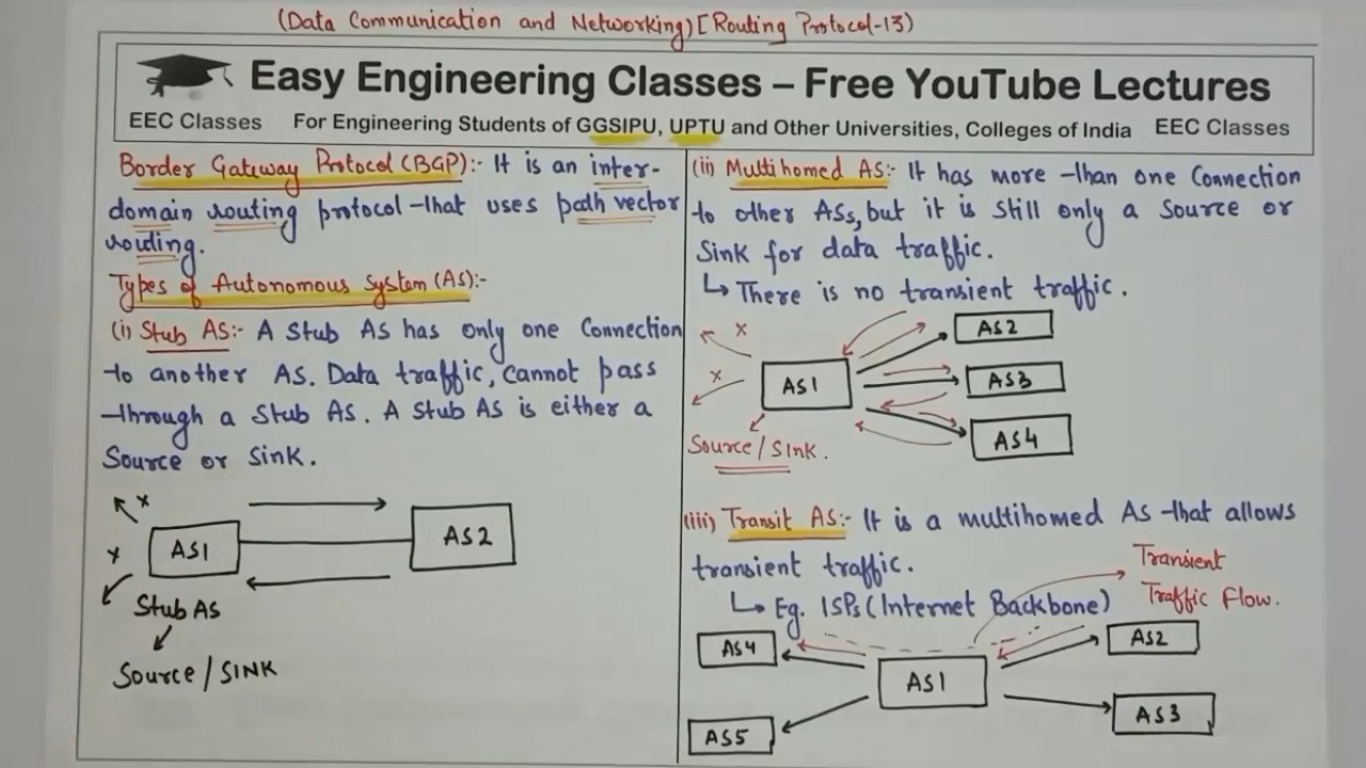 (Data Communication and Networking) [Routing Protocol-13)
Easy Engineering Classes – Free YouTube Lectures
EEC Classes For Engineering Students of GGSIPU, UPTU and Other Universities, Colleges of India EEC Classes
Border Gateway Protocol (BGP):- It is an inter-
domain routing protocol that uses path vector
routing.
Types of Autonomous System (AS):-
(i) Stub AS:- A Stub AS has only one Connection
to another AS. Data traffic, cannot pass
through a Stub AS. A Stub AS is either a
Source or Sink.
x
x
AS1
AS2
Stub AS
Source / SINK
(ii) Multihomed AS:- It has more than one Connection
to other ASs, but it is still only a Source or
Sink for data traffic.
↳ There is no transient traffic.
x
x
AS1
AS2
AS3
AS4
Source / Sink.
(iii) Transit AS:- It is a multihomed AS that allows
transient traffic.
↳ Eg. ISPs (Internet Backbone)
Transient
Traffic Flow.
AS4
AS1
AS2
AS5
AS3